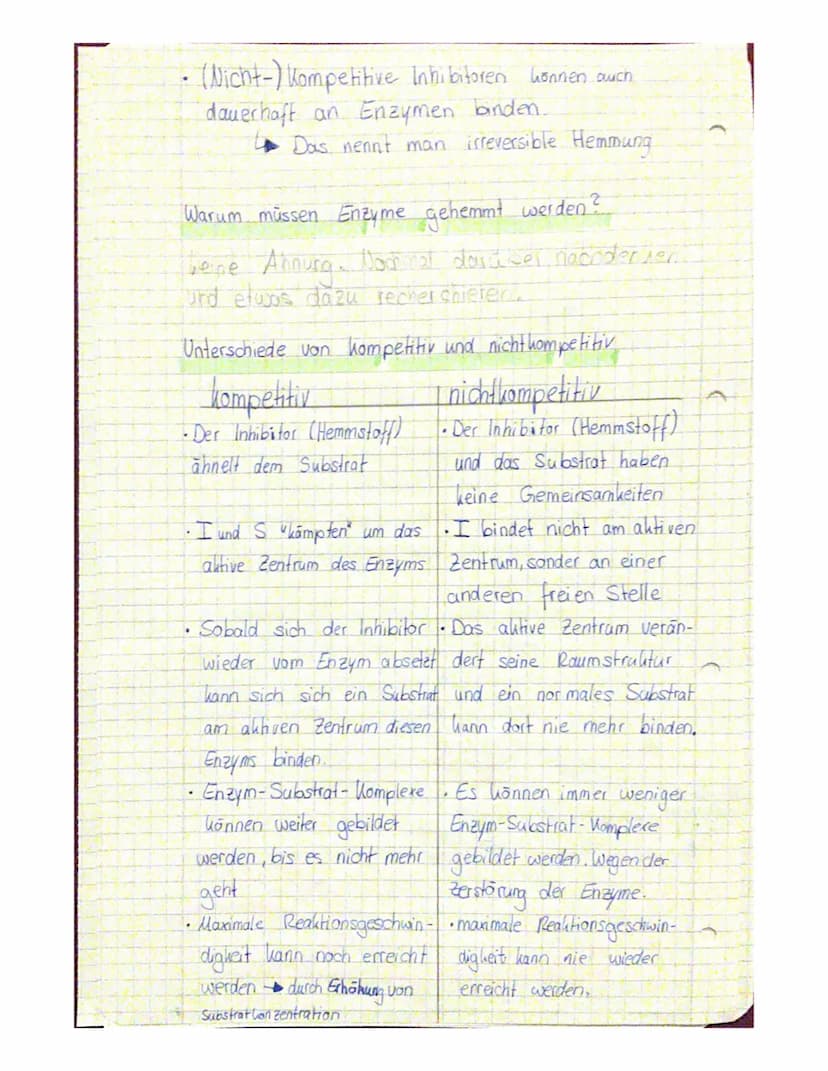 · (Nicht-) Kompetitive Inhibitoren können auch
dauerhaft an Enzymen binden.
↳ Das nennt man irreversible Hemmung
Warum müssen Enzyme gehemmt werden?
keine Ahnung. Nochmal darüber nachdenken
und etwas dazu recherchieren.
Unterschiede von kompetitiv und nichtkompetitiv
kompetitiv
· Der Inhibitor (Hemmstoff)
ähnelt dem Substrat
· I und S "kämpfen" um das
aktive Zentrum des Enzyms
· Sobald sich der Inhibitor
wieder vom Enzym absetzt
kann sich sich ein Substrat
am aktiven Zentrum diesen
Enzyms binden.
· Enzym-Substrat-Komplexe
können weiter gebildet
werden, bis es nicht mehr
geht
· Maximale Reaktionsgeschwin-
digkeit kann noch erreicht
werden → durch Erhöhung von
Substratkonzentration
nichtkompetitiv
· Der Inhibitor (Hemmstoff)
und das Substrat haben
keine Gemeinsamkeiten
· I bindet nicht am aktiven
Zentrum, sonder an einer
anderen freien Stelle
· Das aktive Zentrum verän-
dert seine Raumstruktur
und ein normales Substrat
kann dort nie mehr binden.
· Es können immer weniger
Enzym-Substrat-Komplexe
gebildet werden. Wegen der
Zerstörung der Enzyme.
· maximale Reaktionsgeschwin-
digkeit kann nie wieder
erreicht werden.